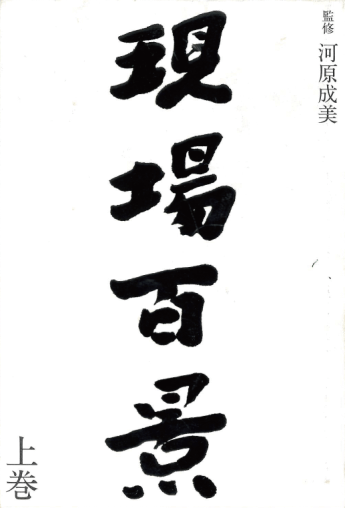 監修 河原成美
現場百景
上巻